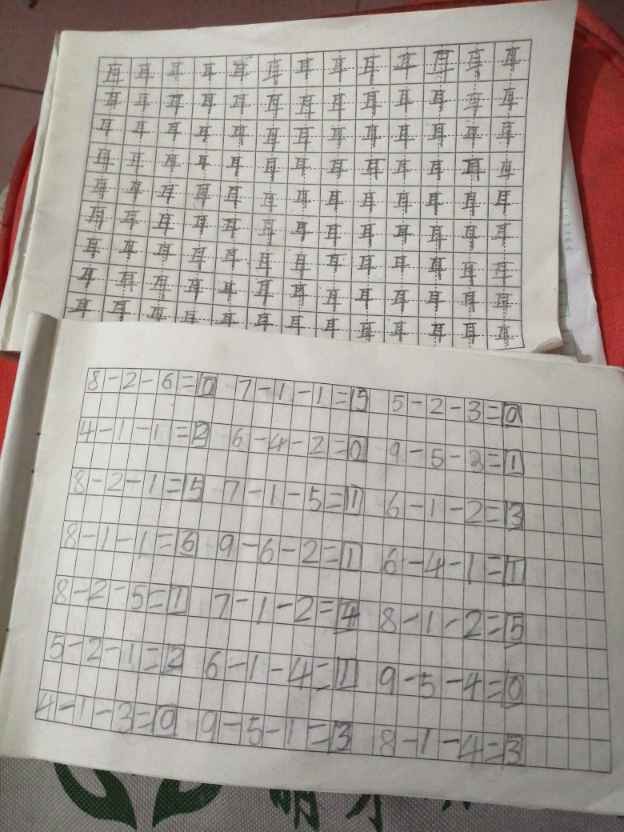 耳耳耳耳耳耳耳耳耳耳耳耳耳
耳耳耳耳耳耳耳耳耳耳耳耳耳
耳耳耳耳耳耳耳耳耳耳耳耳耳
耳耳耳耳耳耳耳耳耳耳耳耳耳
耳耳耳耳耳耳耳耳耳耳耳耳耳
耳耳耳耳耳耳耳耳耳耳耳耳耳
耳耳耳耳耳耳耳耳耳耳耳耳耳
耳耳耳耳耳耳耳耳耳耳耳耳耳
耳耳耳耳耳耳耳耳耳耳耳耳耳
8-2-6=0 7-1-1=5 5-2-3=0
4-1-1=2 6-4-2=0 9-5-3=1
8-2-1=5 7-1-5=1 6-1-2=3
8-1-1=6 9-6-2=1 6-4-1=1
8-2-5=1 7-1-2=4 8-1-2=5
5-2-1=2 6-1-4=1 9-5-4=0
4-1-3=0 9-5-1=3 8-1-4=3